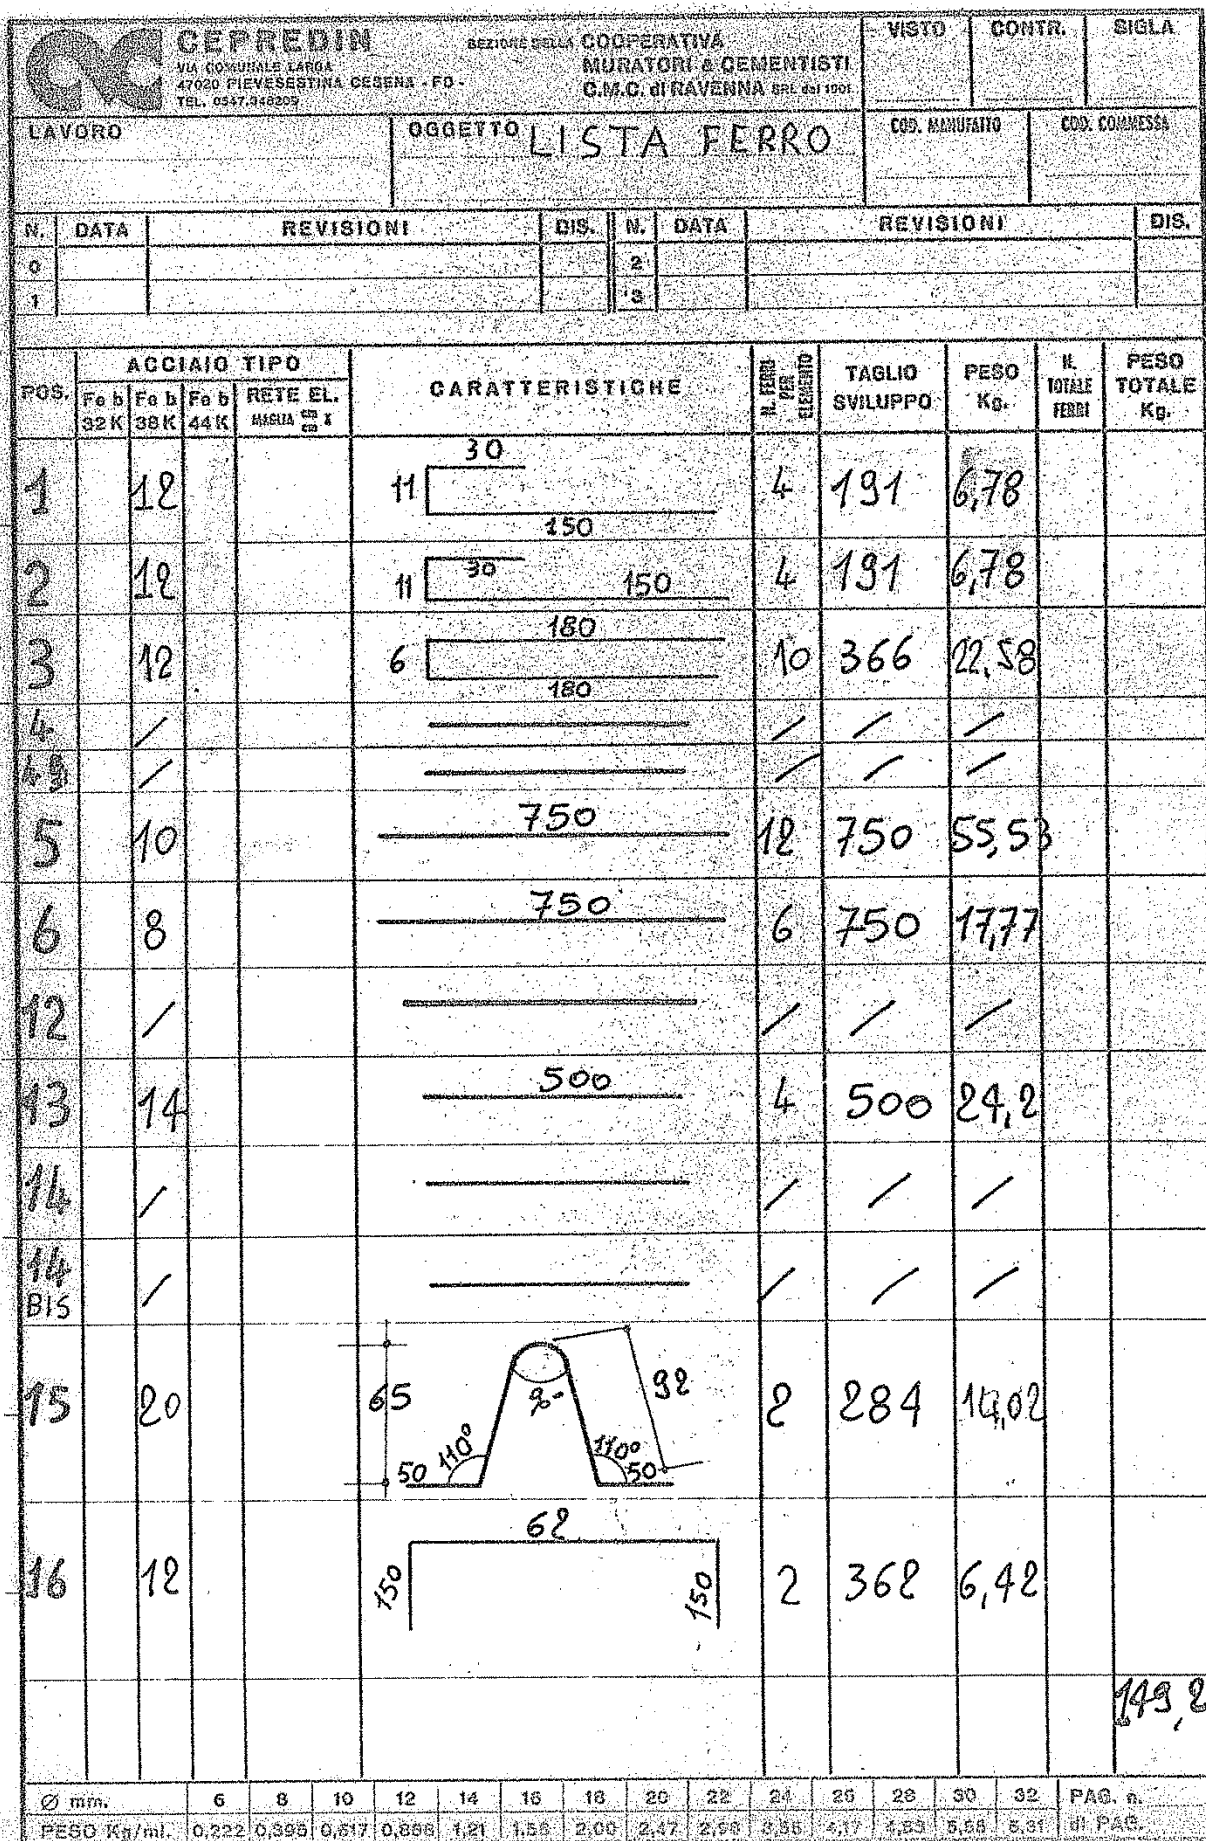 CEPREDIN
VIA COMUNALE LARGA
47020 PIEVESESTINA CESENA - FO -
TEL. 0547.348209
SEZIONE DELLA COOPERATIVA
MURATORI & CEMENTISTI
C.M.C. di RAVENNA SRL dal 1901
VISTO CONTR. SIGLA
LAVORO
OGGETTO LISTA FERRO
COD. MANUFATTO COD. COMMESSA
N. DATA REVISIONI DIS. N. DATA REVISIONI DIS.
0 2
1 3
POS. ACCIAIO TIPO CARATTERISTICHE N. FERRI PER ELEMENTO TAGLIO SVILUPPO PESO Kg. N. TOTALE FERRI PESO TOTALE Kg.
Fe b 32 K Fe b 38 K Fe b 44 K RETE EL. MAGLIA cm cm x
1 12 30 11 150 4 191 6,78
2 12 30 11 150 4 191 6,78
3 12 180 6 180 10 366 22,58
4 / / / /
/ / / /
5 10 750 12 750 55,53
6 8 750 6 750 17,77
12 / / / /
13 14 500 4 500 24,2
14 / / / /
14 BIS / / / /
15 20 65 50 110° 110° 50 92 2 284 14,02
16 12 62 150 150 2 362 6,42
149,2
Ø mm. 6 8 10 12 14 16 18 20 22 24 26 28 30 32 PAG. n.
PESO Kg/ml. 0,222 0,395 0,617 0,888 1,21 1,58 2,00 2,47 2,98 3,55 4,17 4,83 5,55 6,31 di PAG.